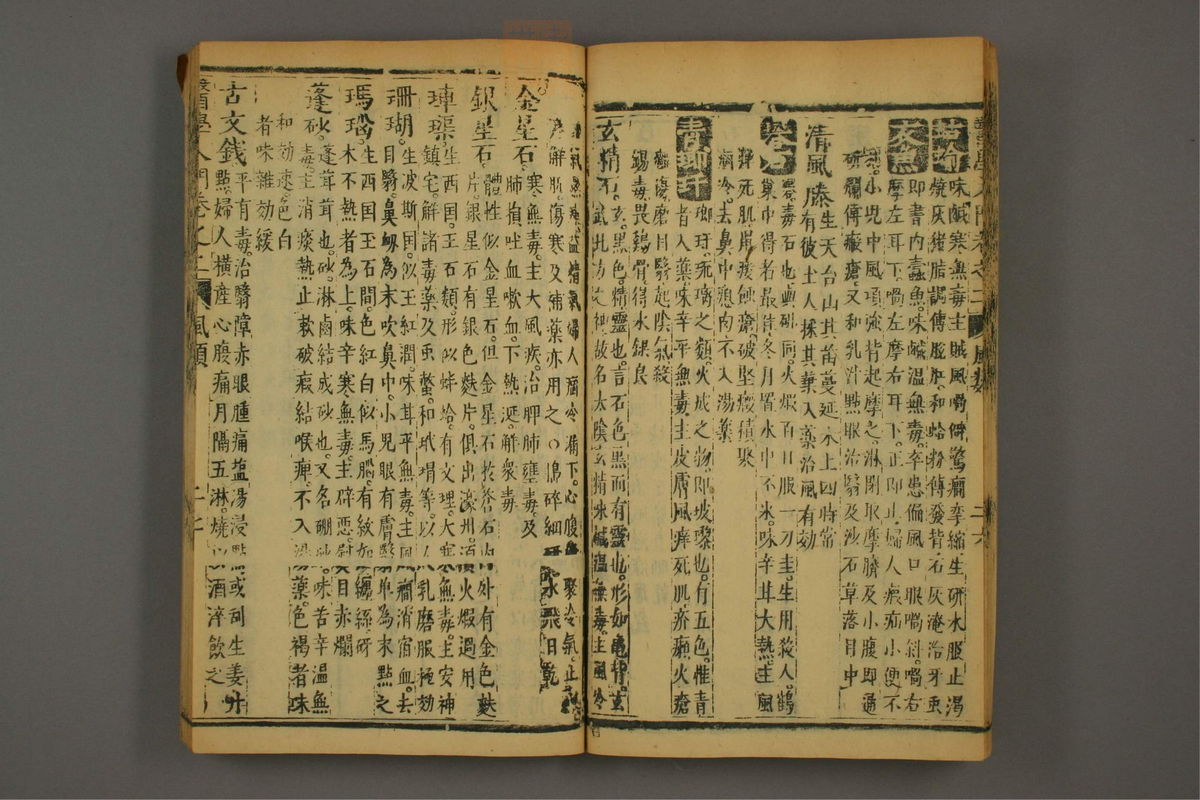 味鹹寒無毒主賊風骨僻驚癇攣縮生研水服止渴
燒灰猪脂調傅脫肛和蛤粉傅發背石灰淹治牙虫
衣魚 即書內蠹魚味鹹溫無毒卒患偏風口眼喎斜喎右
摩左耳下喎左摩右耳下正即止婦人疝小便不
小兒中風項強背起摩之淋閉取摩臍及小腹即通
研爛傅瘢瘡又和乳汁點眼治翳及沙石草落目中
清風藤 生天台山其苗蔓延木上四時常
有彼土人採其葉入藥治風有効
礜石 礜毒石也與砒同火煅百日服一刀圭生用殺人鶴
巢中得者最佳冬月置水中不氷味辛甘大熱主風
死肌鼠瘻蝕瘡破堅癥積聚
痼冷去鼻中瘜肉不入湯藥
青琅玕 琅玕琉璃之類火成之物即玻瓈也有五色惟青
者入藥味辛平無毒主皮膚風痒死肌疥癩火瘡
傷磨目翳起陰氣殺
錫毒畏雞骨得水銀良
玄精石 玄黑色精靈也言石色黑而有靈也形如龜背玄
武北方之神故名太陰玄精味鹹溫無毒主風冷
精氣婦人痼冷漏下心腹 聚冷氣止
解肌傷寒及補藥亦用之○搗碎細研水飛日乾
金星石 寒無毒主大風疾治脾肺壅毒及
肺損吐血嗽血下熱涎解衆毒
銀星石 體性似金星石但金星石於蒼石內外有金色麩
片銀星石有銀色麩片俱出濠州湏火煅過用
硨磲 生西国玉石類形似蚌蛤有文理大寒無毒主安神
鎮宅解諸毒藥及虫螫和玳瑁等以人乳磨服極効
珊瑚 生波斯国似玉紅潤味甘平無毒主風癇消宿血去
目翳鼻衂為末吹鼻中小兒眼有膚翳單為末點之
瑪瑙 生西国玉石間色紅白似馬腦有紋如纏絲研
木不熱者為上味辛寒無毒主辟惡熨目赤爛
蓬砂 蓬茸茸也砂淋鹵結成砂也又名硼砂味苦辛溫無
毒主消痰熱止軟破癥結喉痺不入湯藥色褐者味
和効速色白
者味雜効緩
古文錢 平有毒治翳障赤眼腫痛塩湯浸點或刮生姜汁
點婦人橫產心腹痛月隔五淋燒以酒淬飲之
醫學入門卷之二 風類 二十